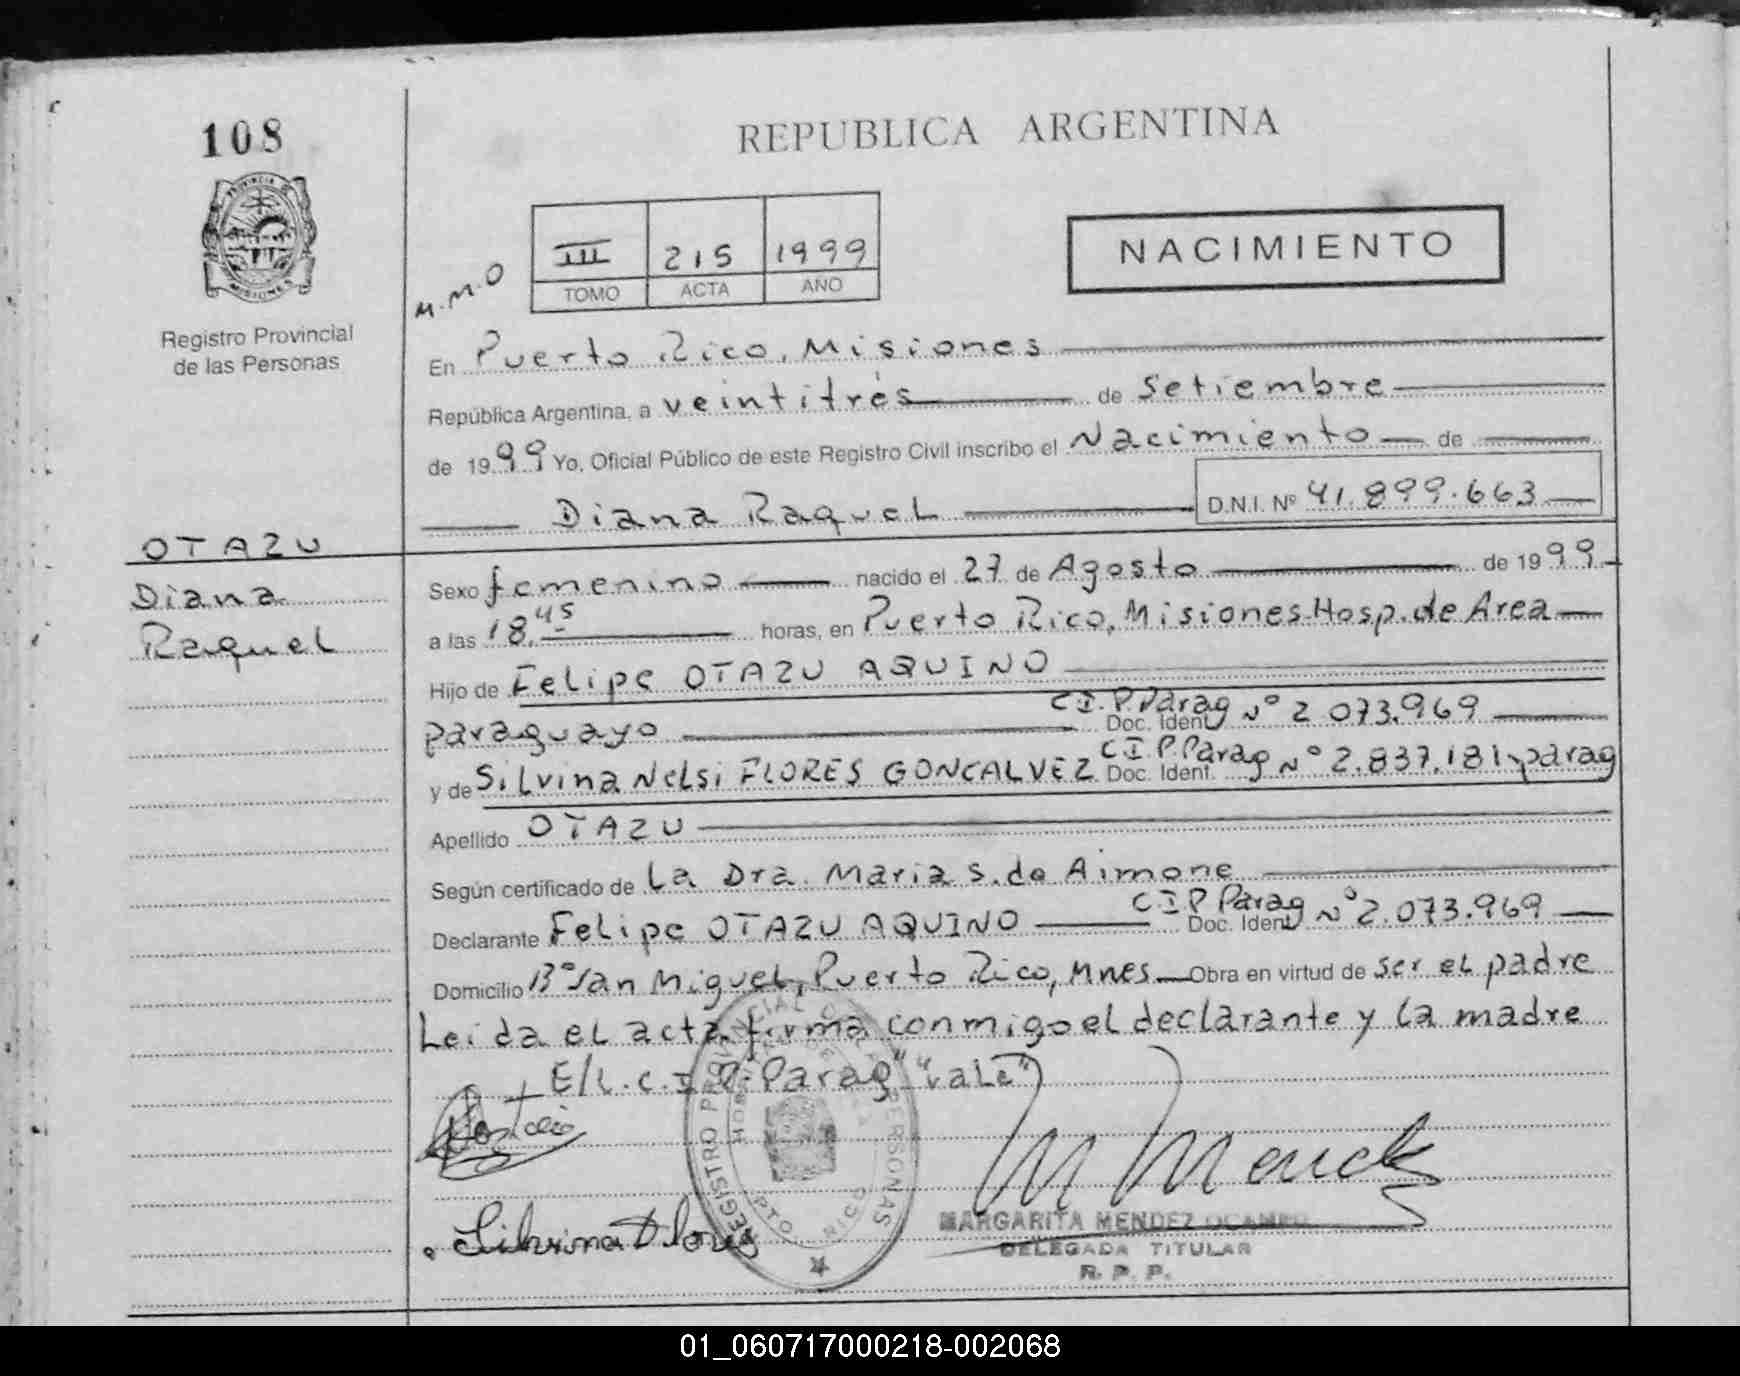 108
REPUBLICA ARGENTINA
PROVINCIA DE MISIONES
Registro Provincial
de las Personas
M.M.O
III 215 1999
TOMO ACTA AÑO
NACIMIENTO
En Puerto Rico, Misiones
República Argentina, a veintitrés de Setiembre
de 1999 Yo, Oficial Público de este Registro Civil inscribo el Nacimiento de
Diana Raquel D.N.I. Nº 41.899.663
OTAZU
Diana
Raquel
Sexo femenino nacido el 27 de Agosto de 1999
a las 18.45 horas, en Puerto Rico, Misiones-Hosp. de Area
Hijo de Felipe OTAZU AQUINO
paraguayo C I. P. Parag Doc. Ident Nº 2 073.969
y de Silvina Nelsi FLORES GONCALVEZ C I. P. Parag Doc. Ident. Nº 2.837.181-parag
Apellido OTAZU
Según certificado de La Dra. Maria S. de Aimone
Declarante Felipe OTAZU AQUINO C I P Parag Doc. Ident Nº 2.073.969
Domicilio Bº San Miguel, Puerto Rico, Mnes Obra en virtud de ser el padre
Leida el acta, firma conmigo el declarante y la madre
E/L. C. I P. Parag "vale"
REGISTRO PROVINCIAL DE LAS PERSONAS
PTO RICO
Silvina Flores
MARGARITA MENDEZ OCAMPO
DELEGADA TITULAR
R. P. P.
01_060717000218-002068